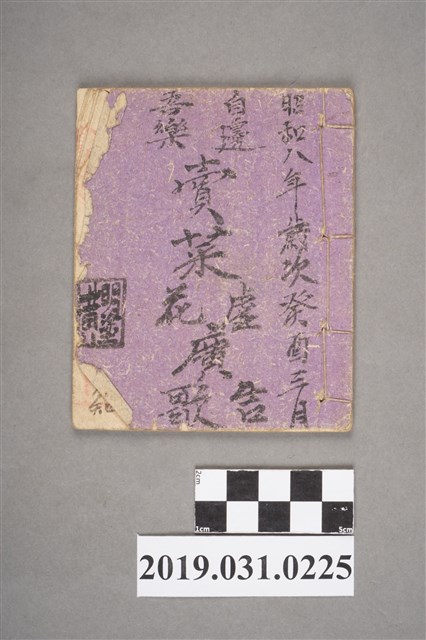 昭和八年歲次癸酉三月
自邊
吾樂
賣菜
虛花
廣告
歌
明塗
2cm
1cm
5cm
2019.031.0225